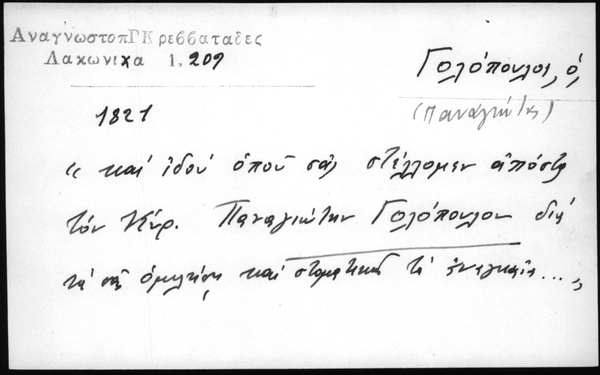 ΑναγνωστοπΓΚρεββαταδες
Λακωνικα 1, 209
Γολόπουλος, ὁ,
(Παναγιώτης)
1821
« καί ἰδού ὁποῦ σᾶς στέλλομεν ἀπόστολον
τόν Κύρ. Παναγιώτην Γολόπουλον διά
νά σᾶς ὁμιλήση καί στοματικῶς τά ἀναγκαῖα ... »